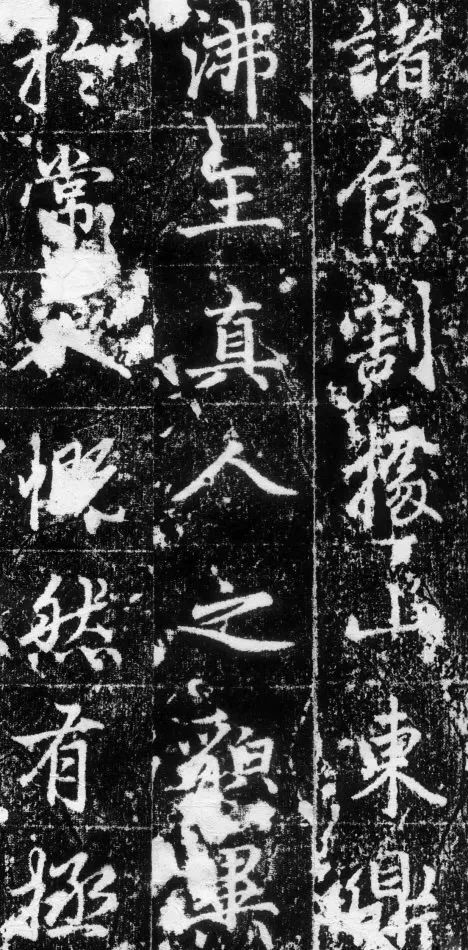 諸侯割據山東鼎
沸至真人之貌異
於常人慨然有極